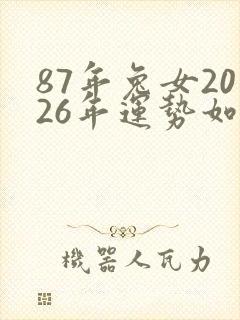 87年兔女20
26年運勢如
機器人瓦力